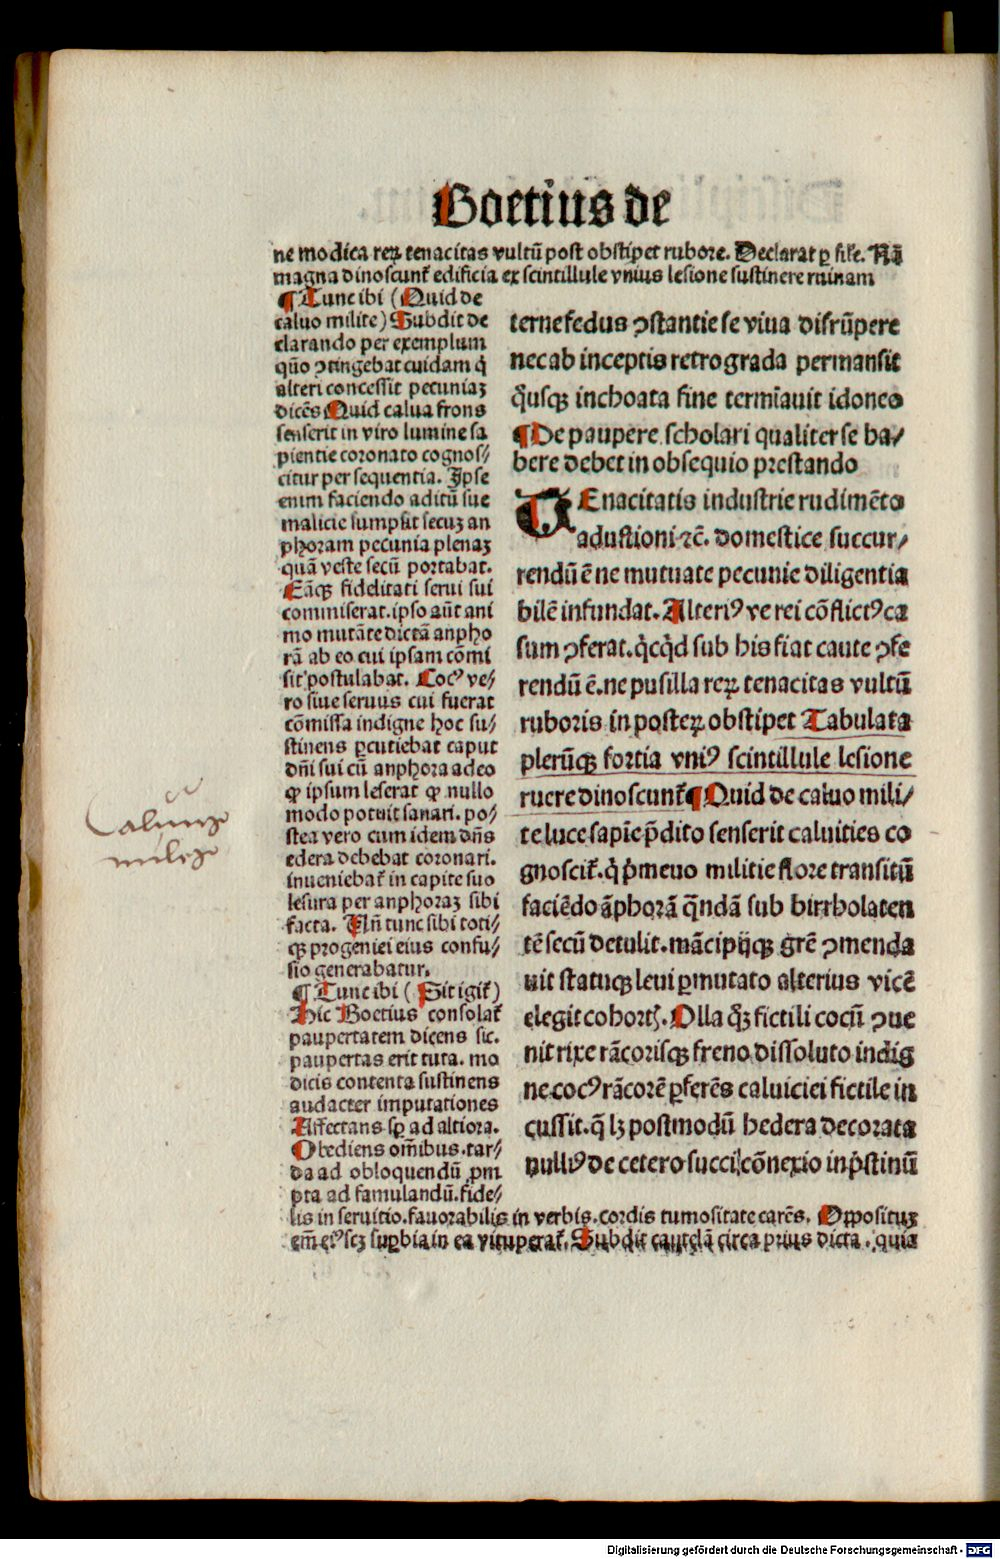 Boetius de
ne modica reꝝ tenacitas vultū post obstipet rubore. Declarat ꝑ siłe. Nā
magna dinoscunt᷑ edificia ex scintillule vnius lesione sustinere ruinam
¶ Tunc ibi (Quid de
caluo milite) Subdit de
clarando per exemplum
qūo ꝯtingebat cuidam q̇
alteri concessit pecuniaꝫ
dicēs Quid calua frons
senserit in viro lumine sa
pientie coronato cognos/
citur per sequentia. Ipse
enim faciendo aditū sue
malicie sumpsit secuꝫ an
phoram pecunia plenaꝫ
quā veste secū portabat.
Eāqꝫ fidelitati serui sui
commiserat. ipso aūt ani
mo mutāte dictā anpho
rā ab eo cui ipsam cōmi
sit postulabat. Cocꝰ ve/
ro siue seruus cui fuerat
cōmissa indigne hoc su/
stinens ꝑcutiebat caput
dn̄i sui cū anphora adeo
ꝙ ipsum leserat ꝙ nullo
modo potuit sanari. po/
stea vero cum idem dn̄s
edera debebat coronari.
inueniebat᷑ in capite suo
lesura per anphoraꝫ sibi
facta. Uñ tunc sibi toti/
qꝫ progeniei eius confu/
sio generabatur.
¶ Tunc ibi (Sit igit᷑)
Hic Boetius consolat᷑
paupertatem dicens sic.
paupertas erit tuta. mo
dicis contenta sustinens
audacter imputationes
Affectans sꝑ ad altiora.
Obediens om̄ibus. tar/
da ad obloquendū ꝓm
pta ad famulandū. fide/
lis in seruitio. fauorabilis in verbis. cordis tumositate carēs. Oppositum
em̄ eiꝰ scꝫ suꝑbia in ea vituperat᷑. Subdit cautelā circa prius dicta. quia
terne fedus ꝯstantie se viua disrūpere
nec ab inceptis retrograda permansit
q̇usqꝫ inchoata fine termīauit idoneo
¶ De paupere scholari qualiter se ha/
bere debet in obsequio prestando
TEnacitatis industrie rudimēto
adustioni ⁊c̄. domestice succur/
rendū ē ne mutuate pecunie diligentia
bilē infundat. Alteriꝰ ve rei cōflictꝰ ca
sum ꝯferat. q̇cq̇d sub his fiat caute ꝯfe
rendū ē. ne pusilla reꝝ tenacitas vultū
ruboris in posteꝝ obstipet Tabulata
plerūqꝫ fortia vniꝰ scintillule lesione
ruere dinoscunt᷑ ¶ Quid de caluo mili/
te luce sapīe p̄dito senserit caluities co
gnoscit᷑. q̇ p̓meuo militie flore transitū
faciēdo āphorā q̄ndā sub birrho laten
tē secū detulit. mācipijqꝫ gr̄e ꝯmenda
uit statuqꝫ leui ꝑmutato alterius vicē
elegit cohorť. Olla qꝫ fictili cocū ꝯue
nit rixe rācorisqꝫ freno dissoluto indig
ne cocꝰ rācorē ꝑferēs caluiciei fictile in
cussit. q̄ lꝫ postmodū hedera decorata
nulliꝰ de cetero succi cōnexio in p̓stinū
Caluuꝫ
milex
Digitalisierung gefördert durch die Deutsche Forschungsgemeinschaft - DFG